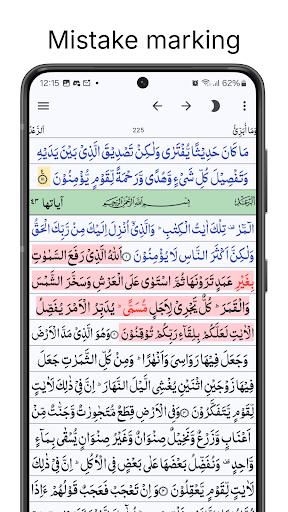 Mistake marking
12:15 62%
وَمَآ اُبَرِّئُ 225 اَلرَّعْد
مَا كَانَ حَدِيْثًا يُّفْتَرٰى وَلٰكِنْ تَصْدِيْقَ الَّذِىْ بَيْنَ يَدَيْهِ
وَتَفْصِيْلَ كُلِّ شَىْءٍ وَّهُدًى وَّرَحْمَةً لِّقَوْمٍ يُّؤْمِنُوْنَ
بِسْمِ اللّٰهِ الرَّحْمٰنِ الرَّحِيْمِ اٰيَاتُهَا ٤٣
الٓمّٓرٰ ۚ تِلْكَ اٰيٰتُ الْكِتٰبِ ؕ وَالَّذِىْۤ اُنْزِلَ اِلَيْكَ مِنْ رَّبِّكَ الْحَقُّ
وَلٰكِنَّ اَكْثَرَ النَّاسِ لَا يُؤْمِنُوْنَ ۝ اَللّٰهُ الَّذِىْ رَفَعَ السَّمٰوٰتِ
بِغَيْرِ عَمَدٍ تَرَوْنَهَا ثُمَّ اسْتَوٰى عَلَى الْعَرْشِ وَسَخَّرَ الشَّمْسَ
وَالْقَمَرَ ؕ كُلٌّ يَّجْرِىْ لِاَجَلٍ مُّسَمًّى ؕ يُدَبِّرُ الْاَمْرَ يُفَصِّلُ
الْاٰيٰتِ لَعَلَّكُمْ بِلِقَآءِ رَبِّكُمْ تُوْقِنُوْنَ ۝ وَهُوَ الَّذِىْ مَدَّ الْاَرْضَ
وَجَعَلَ فِيْهَا رَوَاسِىَ وَاَنْهٰرًا ؕ وَمِنْ كُلِّ الثَّمَرٰتِ جَعَلَ
فِيْهَا زَوْجَيْنِ اثْنَيْنِ يُغْشِى الَّيْلَ النَّهَارَ ؕ اِنَّ فِىْ ذٰلِكَ لَاٰيٰتٍ
لِّقَوْمٍ يَّتَفَكَّرُوْنَ ۝ وَفِى الْاَرْضِ قِطَعٌ مُّتَجٰوِرٰتٌ وَّجَنّٰتٌ مِّنْ
اَعْنَابٍ وَّزَرْعٌ وَّنَخِيْلٌ صِنْوَانٌ وَّغَيْرُ صِنْوَانٍ يُّسْقٰى بِمَآءٍ
وَّاحِدٍ ۫ وَنُفَضِّلُ بَعْضَهَا عَلٰى بَعْضٍ فِى الْاُكُلِ ؕ اِنَّ فِىْ ذٰلِكَ
لَاٰيٰتٍ لِّقَوْمٍ يَّعْقِلُوْنَ ۝ وَاِنْ تَعْجَبْ فَعَجَبٌ قَوْلُهُمْ ءَاِذَا